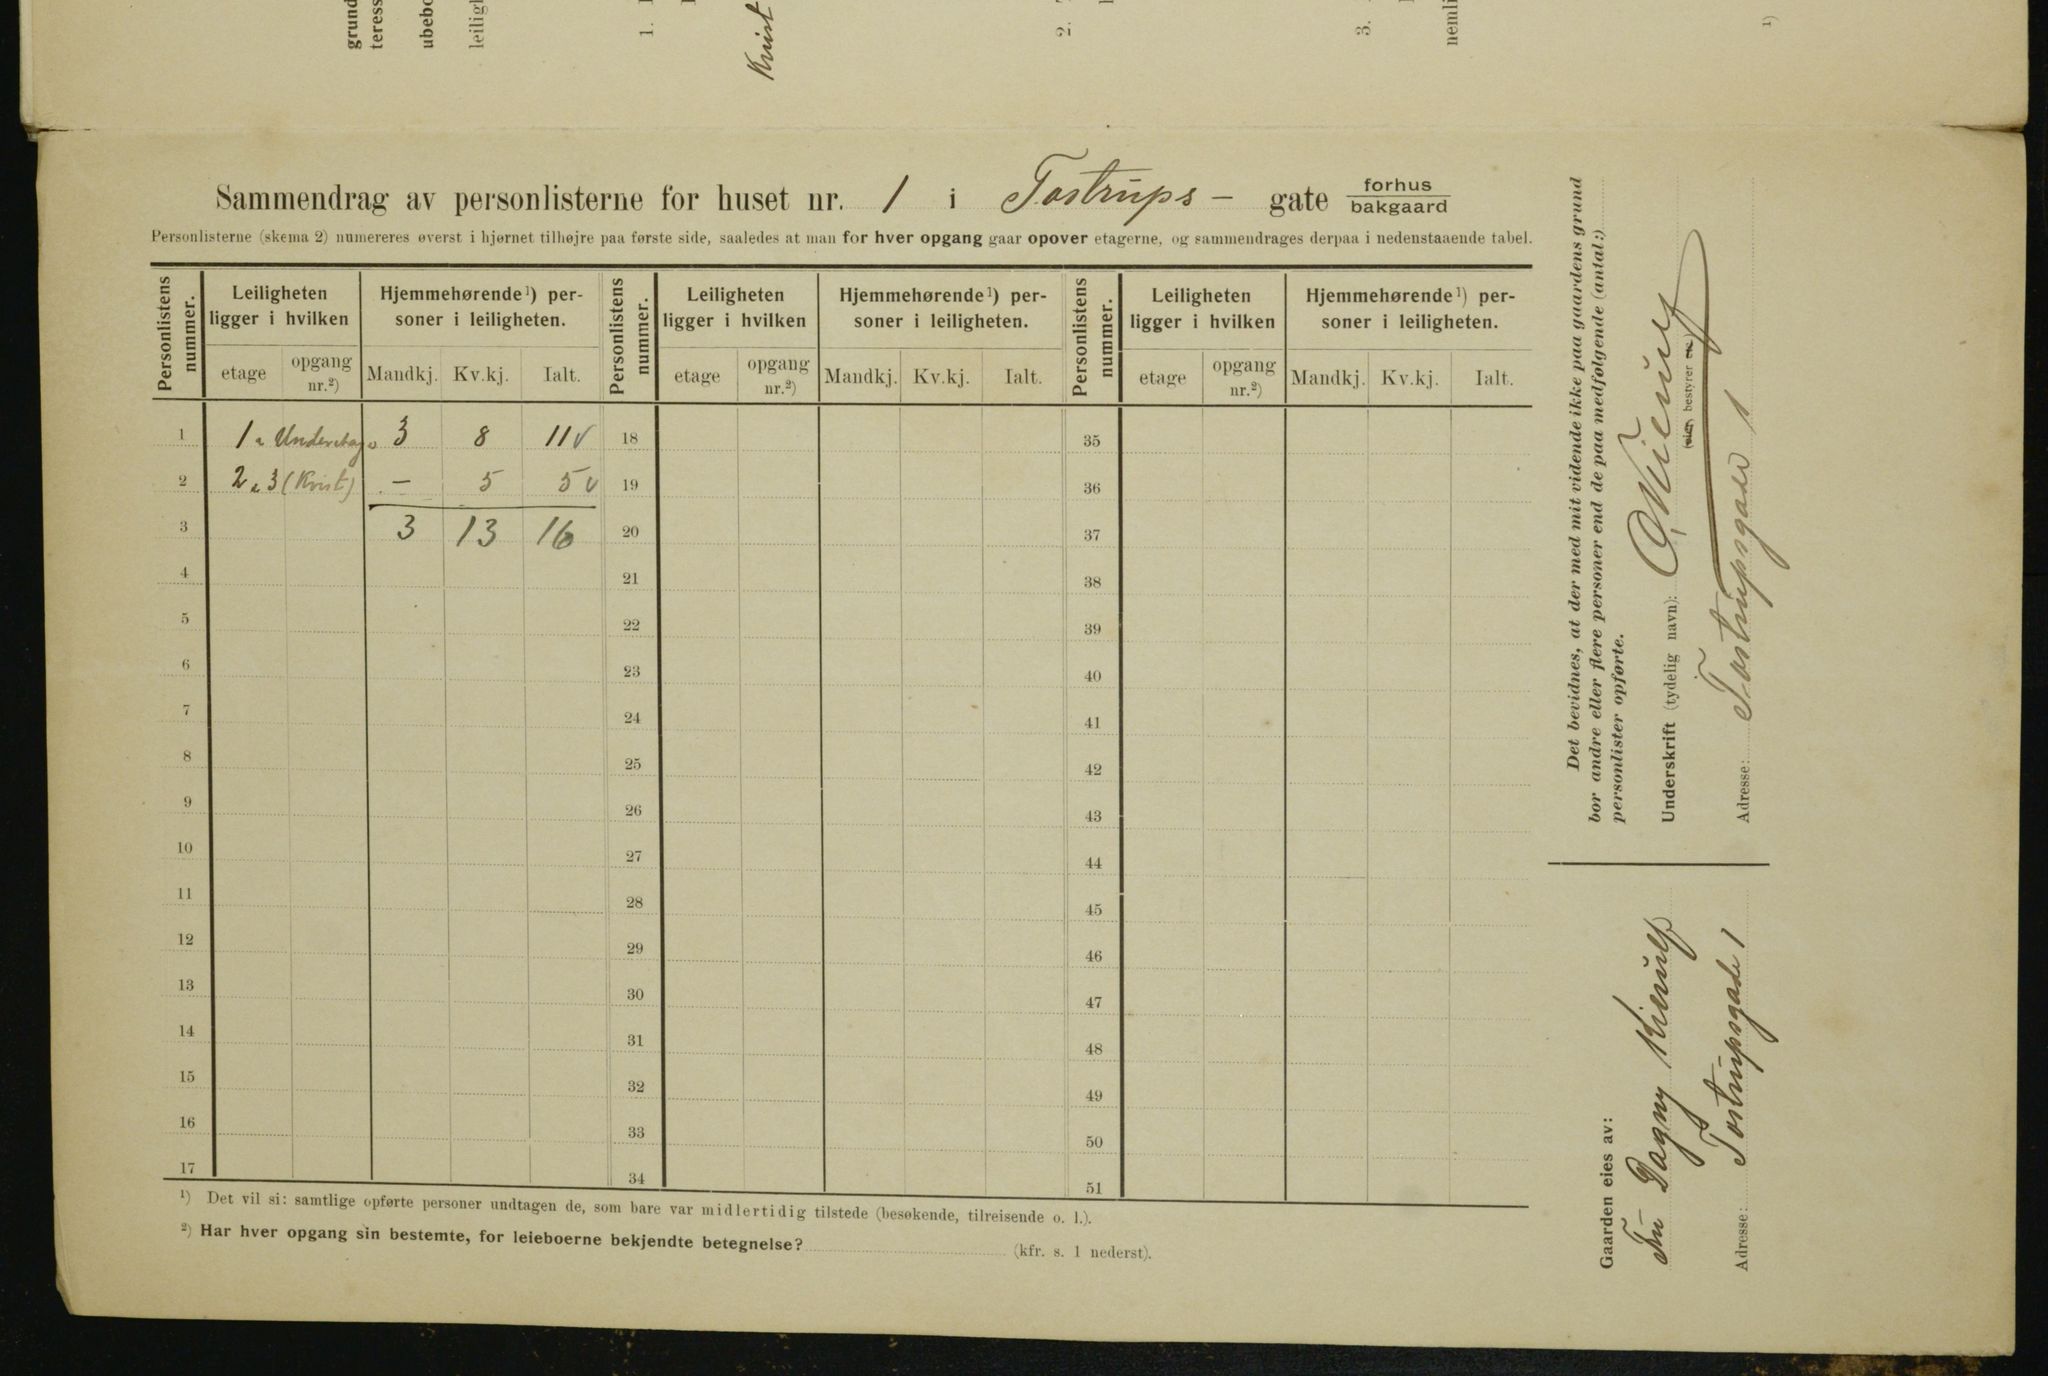 grund
teress
ubebo
leiligh
1.
Kvist
2.
3.
nemli
1)
Sammendrag av personlisterne for huset nr. 1 i Tostrups- gate forhus bakgaard
Personlisterne (skema 2) numereres øverst i hjørnet tilhøjre paa første side, saaledes at man for hver opgang gaar opover etagerne, og sammendrages derpaa i nedenstaaende tabel.
Personlistens nummer. Leiligheten ligger i hvilken Hjemmehørende¹) personer i leiligheten. Personlistens nummer. Leiligheten ligger i hvilken Hjemmehørende¹) personer i leiligheten. Personlistens nummer. Leiligheten ligger i hvilken Hjemmehørende¹) personer i leiligheten.
etage opgang nr.²) Mandkj. Kv.kj. Ialt. etage opgang nr.²) Mandkj. Kv.kj. Ialt. etage opgang nr.²) Mandkj. Kv.kj. Ialt.
1 1 a Underetage 3 8 11 v 18 35
2 2 a 3 (Kvist) – 5 5 v 19 36
3 3 13 16 20 37
4 21 38
5 22 39
6 23 40
7 24 41
8 25 42
9 26 43
10 27 44
11 28 45
12 29 46
13 30 47
14 31 48
15 32 49
16 33 50
17 34 51
¹) Det vil si: samtlige opførte personer undtagen de, som bare var midlertidig tilstede (besøkende, tilreisende o. l.).
²) Har hver opgang sin bestemte, for leieboerne bekjendte betegnelse? (kfr. s. 1 nederst).
Det bevidnes, at der med mit vidende ikke paa gaardens grund
bor andre eller flere personer end de paa medfølgende (antal:)
personlister opførte.
Underskrift (tydelig navn): O. Kierulf
(eier, bestyrer etc.)
Adresse: Tostrupsgade 1
Gaarden eies av:
Fru Dagny Kierulf
Adresse: Tostrupsgade 1